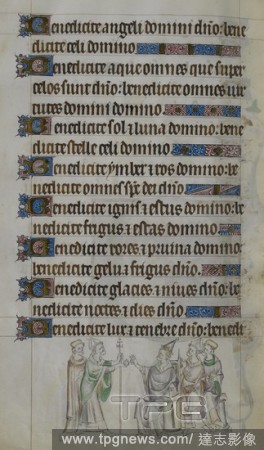 Benedicite angeli domini dño: bene
dicite celi domino
Benedicite aque omnes que super
celos sunt dño: benedicite omnes uir
tutes domini domino
Benedicite sol & luna domino: bene
dicite stelle celi domino
Benedicite ymber & ros domino: be
nedicite omnes sp̃s dei dño
Benedicite ignis & estus domino: be
nedicite frigus & estas domino
Benedicite rores & pruina domino:
benedicite gelu & frigus dño
Benedicite glacies & niues dño: be
nedicite noctes & dies dño
Benedicite lux & tenebre dño: benedi
TPG
www.tpgnews.com/達志影像